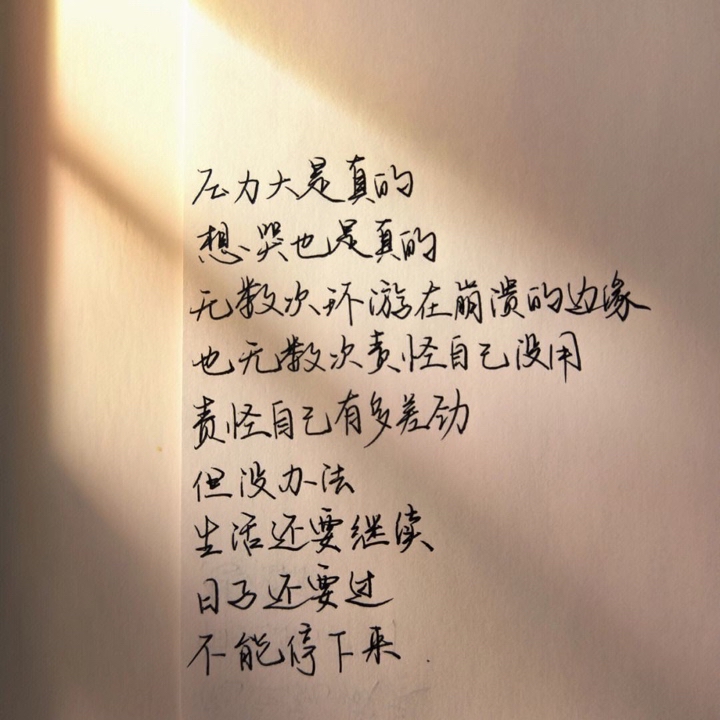 压力大是真的
想哭也是真的
无数次环游在崩溃的边缘
也无数次责怪自己没用
责怪自己有多差劲
但没办法
生活还要继续
日子还要过
不能停下来.